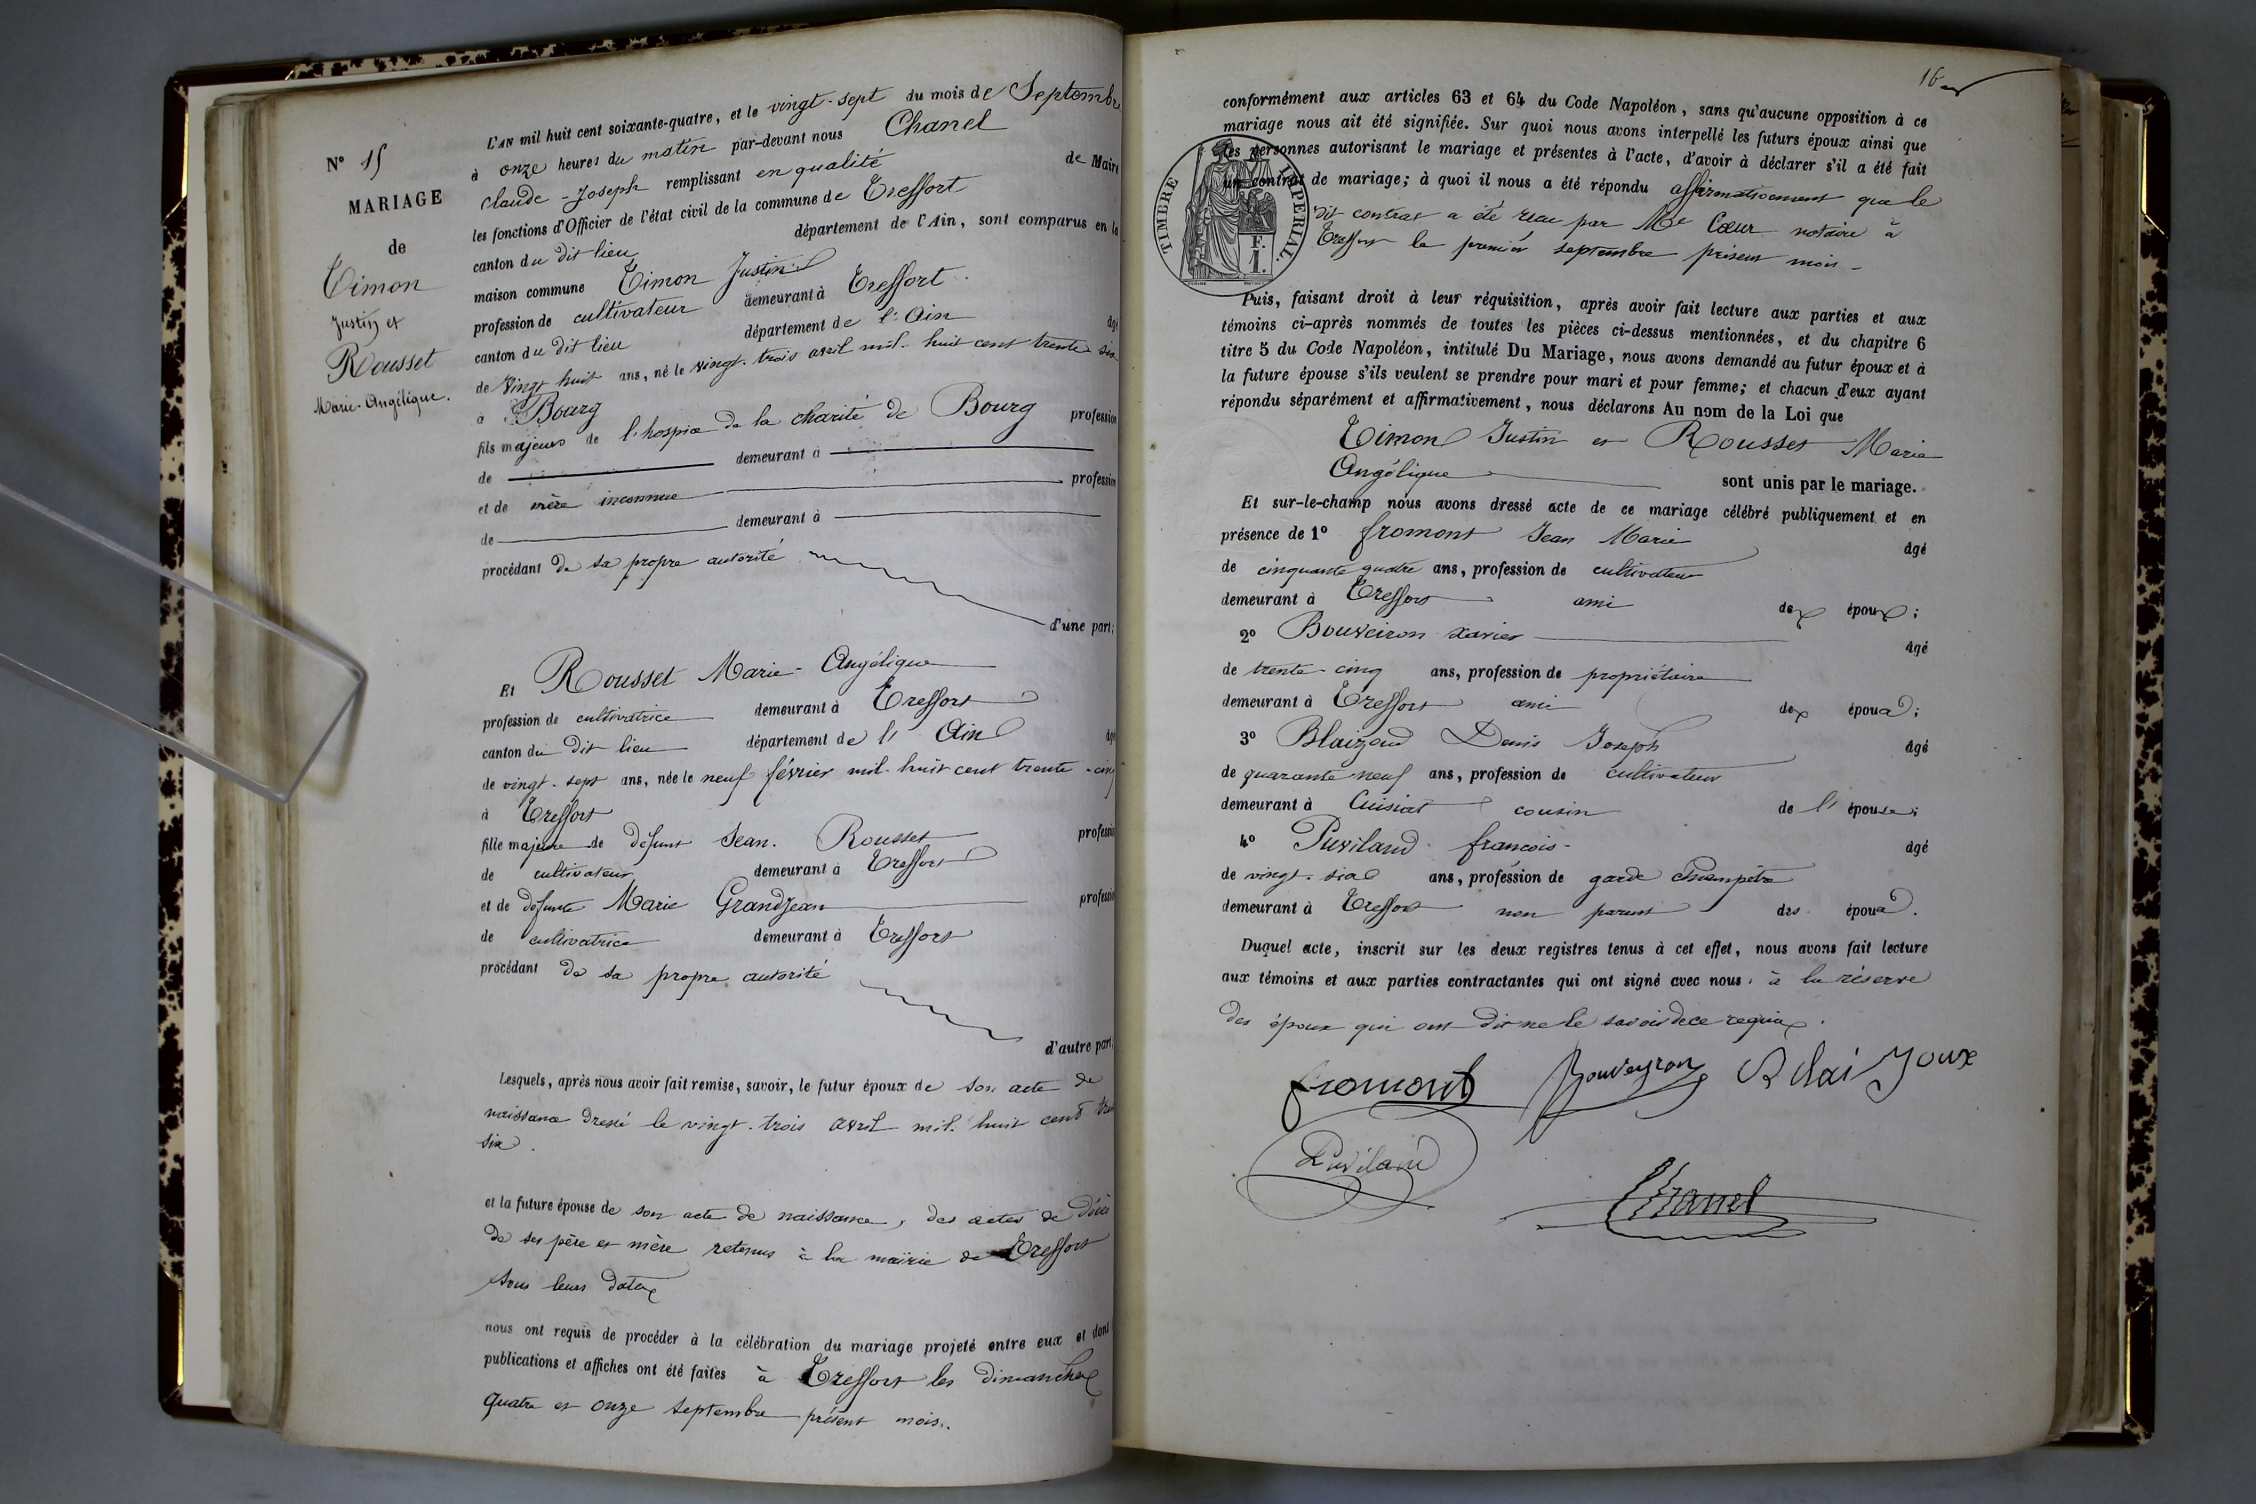 N° 15
MARIAGE
de
Timon
Justin et
Rousset
Marie-Angélique.
L'AN mil huit cent soixante-quatre, et le vingt-sept du mois de Septembre
à onze heures du matin par-devant nous Chanel
claude-Joseph remplissant en qualité de Maire
les fonctions d'Officier de l'état civil de la commune de Treffort
canton du dit lieu département de l'Ain, sont comparus en la
maison commune Timon Justin
profession de cultivateur demeurant à Treffort
canton du dit lieu département de l'Ain âgé
de vingt huit ans, né le vingt-trois avril mil-huit cent trente six
à Bourg
fils majeur de l'hospice de la charité de Bourg profession
de demeurant à
et de mère inconnue profession
de demeurant à
procédant de sa propre autorité
d'une part;
Et Rousset Marie-Angélique
profession de cultivatrice demeurant à Treffort
canton du dit lieu département de l'Ain âgé
de vingt-sept ans, née le neuf février mil-huit cent trente-cinq
à Treffort
fille majeure de défunt Jean Rousset profession
de cultivateur demeurant à Treffort
et de défunte Marie Grandjean profession
de cultivatrice demeurant à Treffort
procédant de sa propre autorité
d'autre part;
Lesquels, après nous avoir fait remise, savoir, le futur époux de son acte de
naissance dressé le vingt-trois avril mil-huit cent
six.
et la future épouse de son acte de naissance, des actes de décès
de ses père et mère retenus à la mairie de Treffort
sous leurs dates
nous ont requis de procéder à la célébration du mariage projeté entre eux et dont
publications et affiches ont été faites à Treffort les dimanches
quatre et onze septembre présent mois.
16
conformément aux articles 63 et 64 du Code Napoléon, sans qu'aucune opposition à ce
mariage nous ait été signifiée. Sur quoi nous avons interpellé les futurs époux ainsi que
les personnes autorisant le mariage et présentes à l'acte, d'avoir à déclarer s'il a été fait
un contrat de mariage; à quoi il nous a été répondu affirmativement que le
dit contrat a été reçu par Me Cœur notaire à
Treffort le premier septembre présent mois-
TIMBRE IMPERIAL.
F.
1.
Puis, faisant droit à leur réquisition, après avoir fait lecture aux parties et aux
témoins ci-après nommés de toutes les pièces ci-dessus mentionnées, et du chapitre 6
titre 5 du Code Napoléon, intitulé Du Mariage, nous avons demandé au futur époux et à
la future épouse s'ils veulent se prendre pour mari et pour femme; et chacun d'eux ayant
répondu séparément et affirmativement, nous déclarons Au nom de la Loi que
Timon Justin et Rousset Marie
Angélique sont unis par le mariage.
Et sur-le-champ nous avons dressé acte de ce mariage célébré publiquement et en
présence de 1° fromont Jean Marie âgé
de cinquante quatre ans, profession de cultivateur
demeurant à Treffort ami des époux;
2° Bouveiron xavier âgé
de trente-cinq ans, profession de propriétaire
demeurant à Treffort ami des époux;
3° Blaizoud Denis Joseph âgé
de quarante neuf ans, profession de cultivateur
demeurant à Cuisiat cousin de l'épouse;
4° Puviland françois- âgé
de vingt-six ans, profession de garde Champêtre
demeurant à Treffort non parent des époux.
Duquel acte, inscrit sur les deux registres tenus à cet effet, nous avons fait lecture
aux témoins et aux parties contractantes qui ont signé avec nous, à la réserve
des époux qui ont dit ne le savoir de ce requis.
fromont Bouveyron
Puviland
Chanel